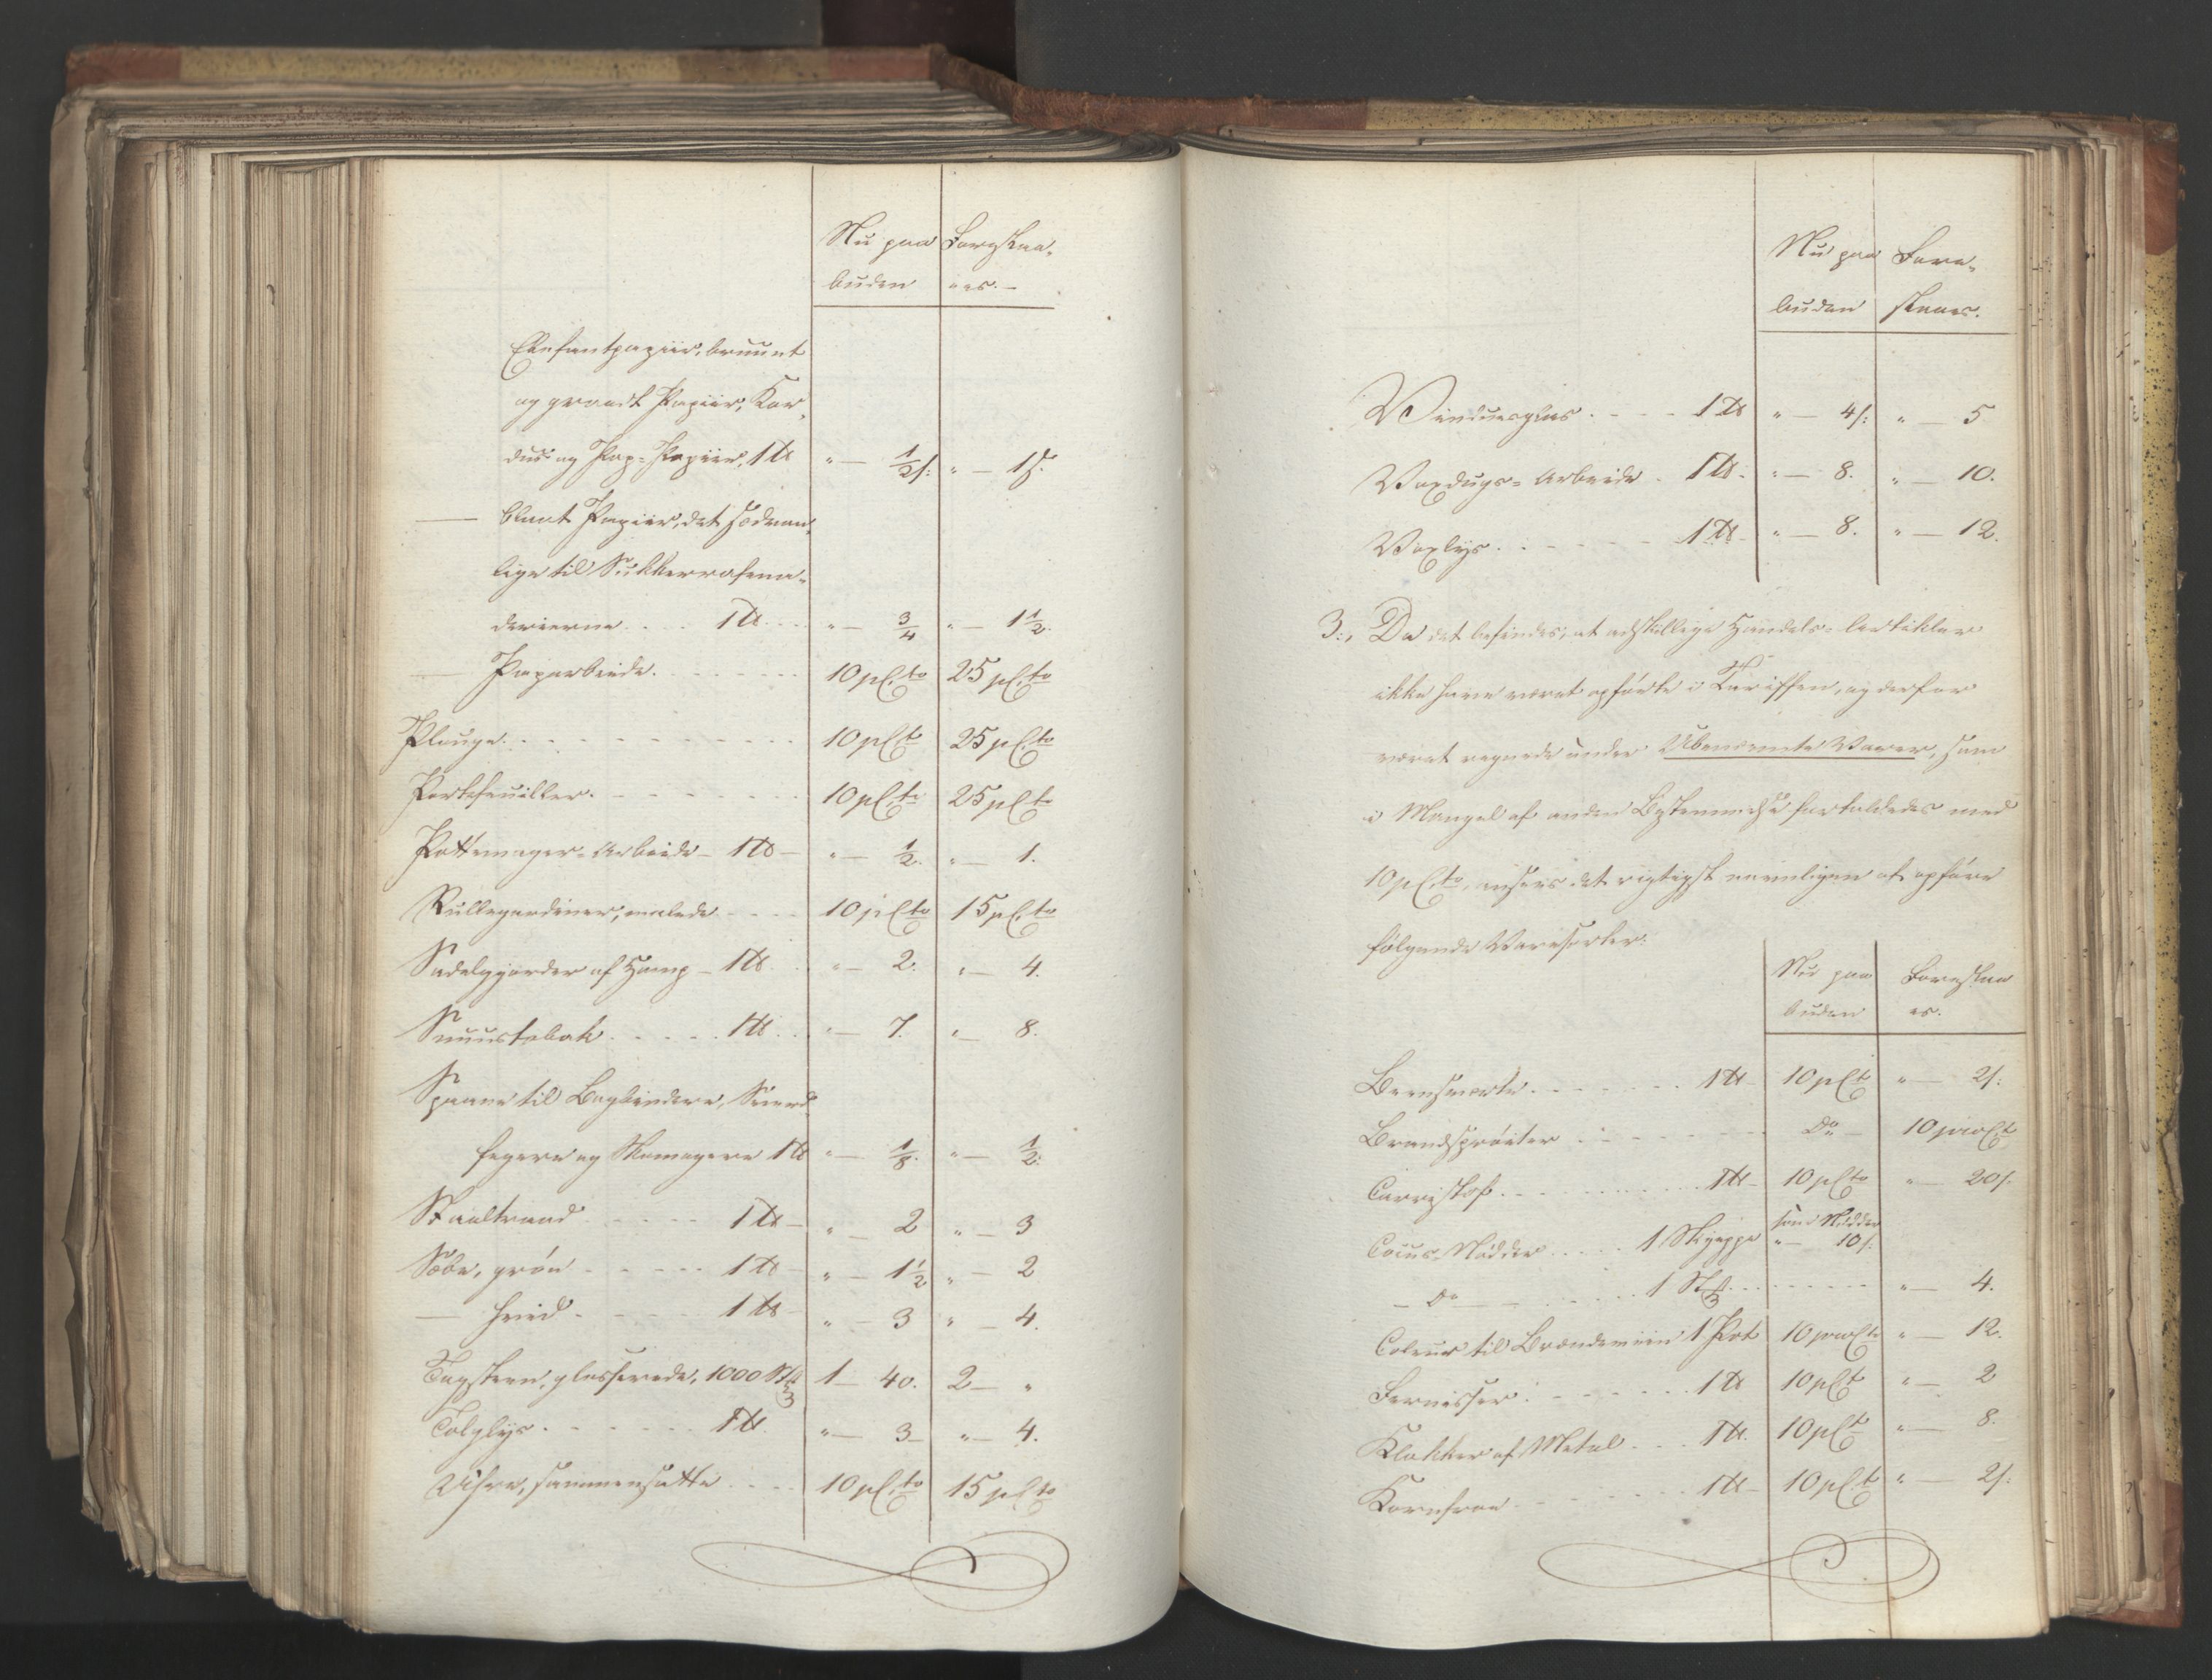 Nu paa Foreslaa-
buden es. -
Elefantpapiir, bruunt
og graadt Papiir, Kar-
dus og Pap-Papiir, 1 ℔ " — 1/2 s: " — 1 s.
— blaat Papiir, det sædvan-
lige til Sukkerrafina-
derierne . . . . 1 ℔ . . . " — 3/4 " — 1 1/2.
— Paparbeide. . . . . 10 pCto 25 pCto
Plouge. . . . . . . 10 pCt 25 pCto
Portefeuiller. . . . . 10 pCto 25 pCto
Pottemager-Arbeide - 1 ℔ - " — 1/2. " — 1.
Rullegardiner, malede . . . 10 pCto 15 pCto
Sadelgjorder af Hamp - 1 ℔. . " — 2. " — 4.
Snuustobak . . . . . 1 ℔ . . " — 7. " — 8.
Spaane til Bogbindere, Sværd-
fegere og Skomagere 1 ℔ " — 1/8. " — 1/2.
Staaltraad . . . . 1 ℔ - " — 2 " — 3
Sæbe, grøn . . . . 1 ℔ - " — 1 1/2 " — 2
— hvid . . . . 1 ℔ - " — 3 " — 4.
Tagsteen, glasserede, 1000 Stk 1 — 40. 2 — "
Talglys . . . . . . 1 ℔. " — 3 — " — 4.
Uhre, sammensatte . . . 10 pCto 15 pCto
Nu paa Fore-
buden slaaes.
Vinduesglas . . . . 1 ℔ " — 4 s: " — 5
Voxdugs-Arbeide . 1 ℔ - " — 8. " — 10.
Voxlys . . . . . . 1 ℔ - " — 8. " — 12.
3., Da det befindes, at adskillige Handels-Artikler
ikke have været opførte i Tariffen, og derfor
været regnede under Ubenævnte Varer, som
i Mangel af anden Bestemmelse fortoldedes med
10 pCto, ansees det rigtigst navnligen at opføre
følgende Varesorter:
Nu paa Foreslaa
buden es.
Beensværte . . . . . . 1 ℔ - 10 pCt " — 2 s:
Brandsprøiter . . . . . . Do — 10 proCt
Carrystof . . . . . . . 1 ℔ - 10 pCto " — 20 s.
Cocus-Nødder . . . . 1 Skjeppe som Nødder
" — 10 s.
— Do — . . . . 1 Stk . . . . . . " — 4.
Coleur til Brændeviin 1 Pot 10 proCto " — 12.
Fernisser . . . . . . 1 ℔ 10 pCt " — 2
Klokker af Metal . . . 1 ℔. 10 pCt " — 8.
Kornfroe . . . . . . 1 ℔ - 10 pCt " — 2 s: